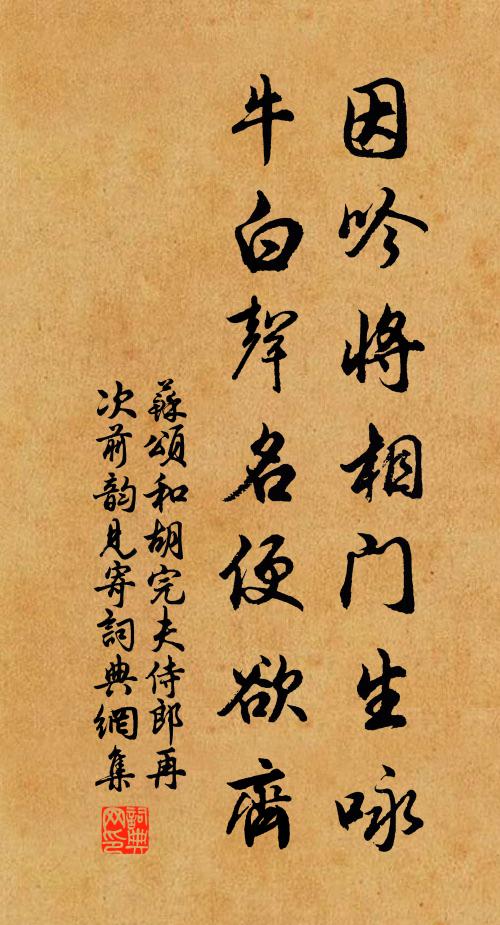 因吟将相门生咏
牛白聲名便欲齊
蘇頌和胡完夫侍郎再
次前韵見寄詞典網集
詞典
网印